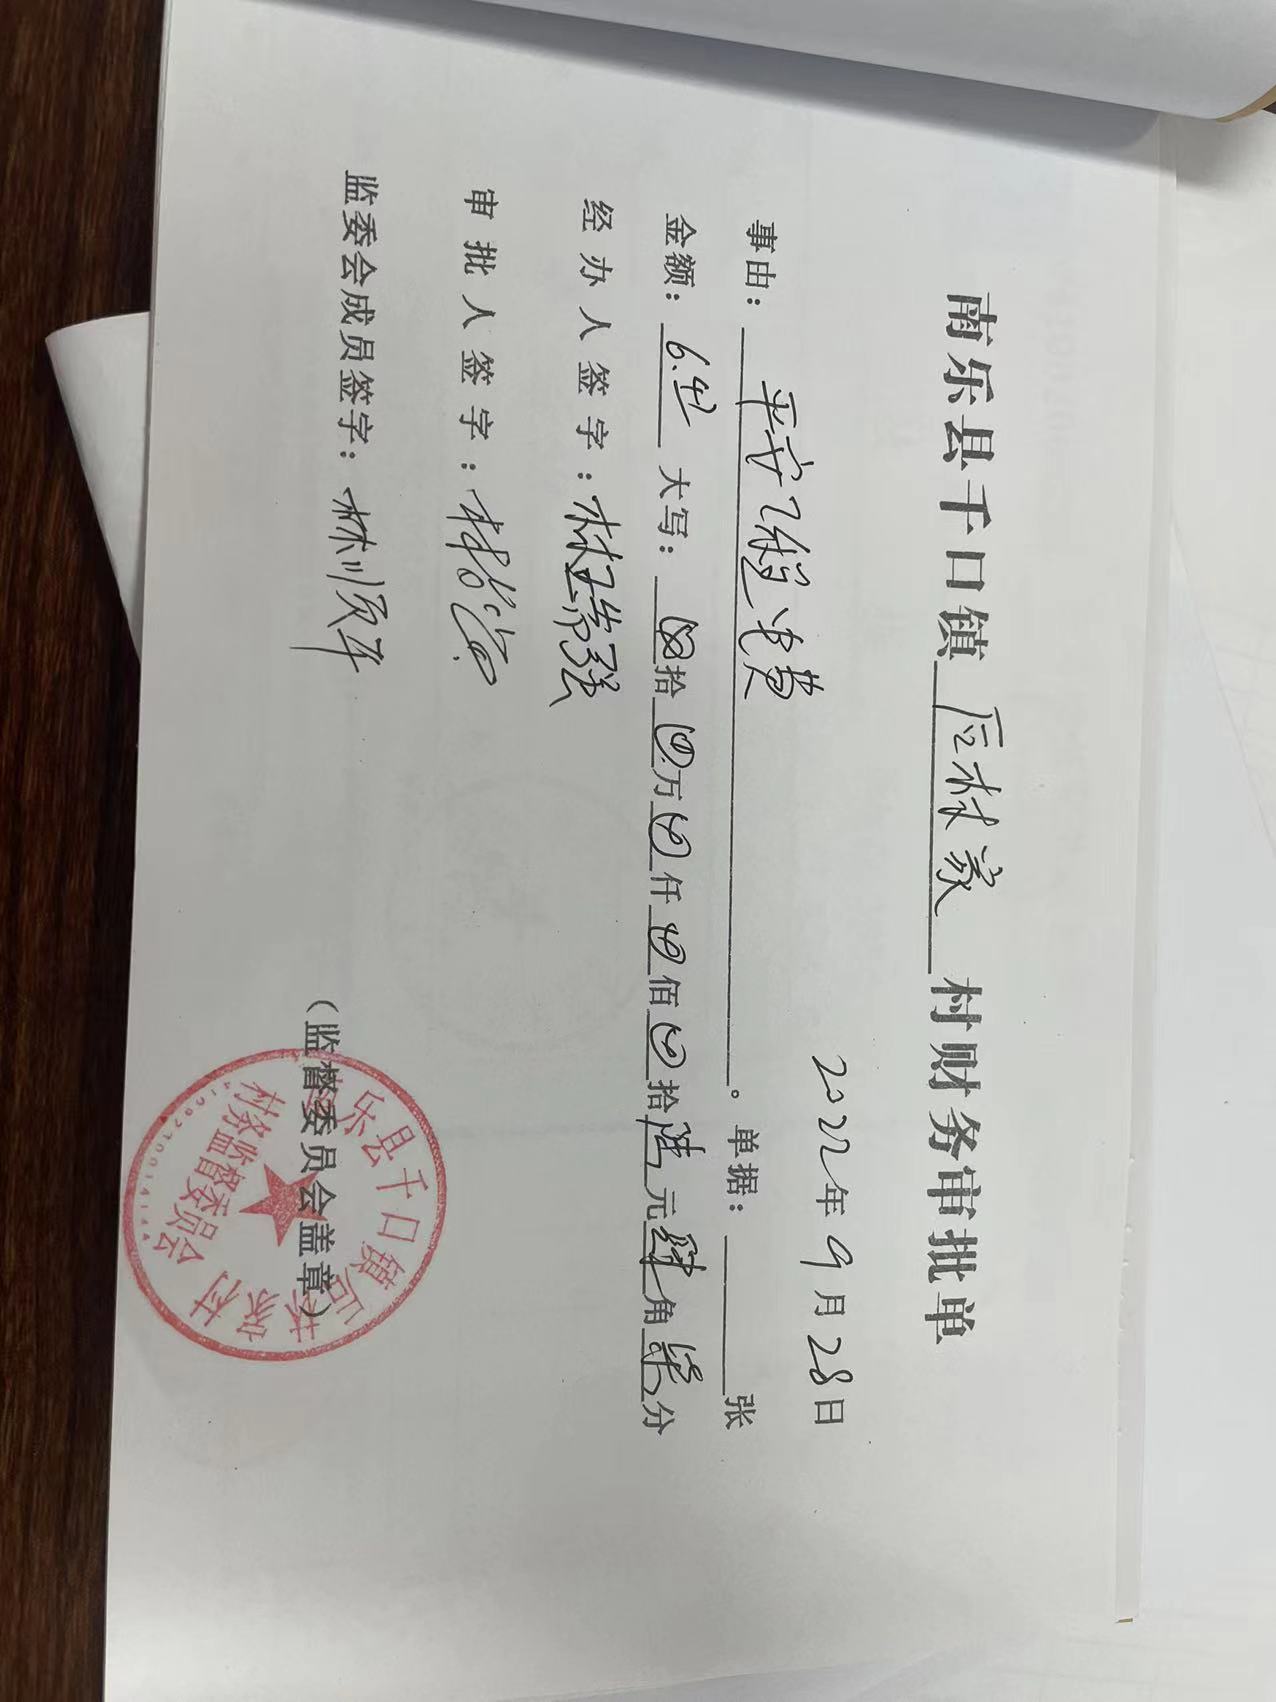 南乐县千口镇 后林家 村财务审批单
2022年9月28日
事由：平安建设费。单据：张
金额：6.47 大写：⊗拾⊗万⊗仟⊗佰⊗拾陆元肆角柒分
经办人签字：林瑞强
审批人签字：林
监委会成员签字：林顺平
（监督委员会盖章）
南乐县千口镇后林家村
村务监督委员会